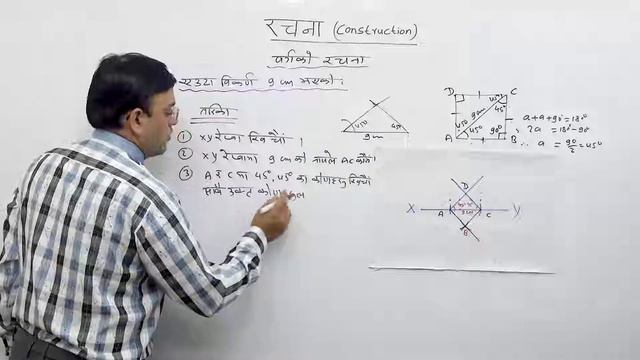 रचना (Construction)
वर्गको रचना
एउटा विकर्ण 9 cm भएको ।
तरिका
① xy रेखा खिचौं ।
② xy रेखामा 9 cm को नापले AC
③ A र C मा 45°, 45° का
45° 45°
9 cm
D C
45°
45°
9 cm
45°
45° 90°
A B
a + a + 90° = 180°
2a = 180° - 90°
∴ a = 90°/2 = 45°
D
X A C Y
B